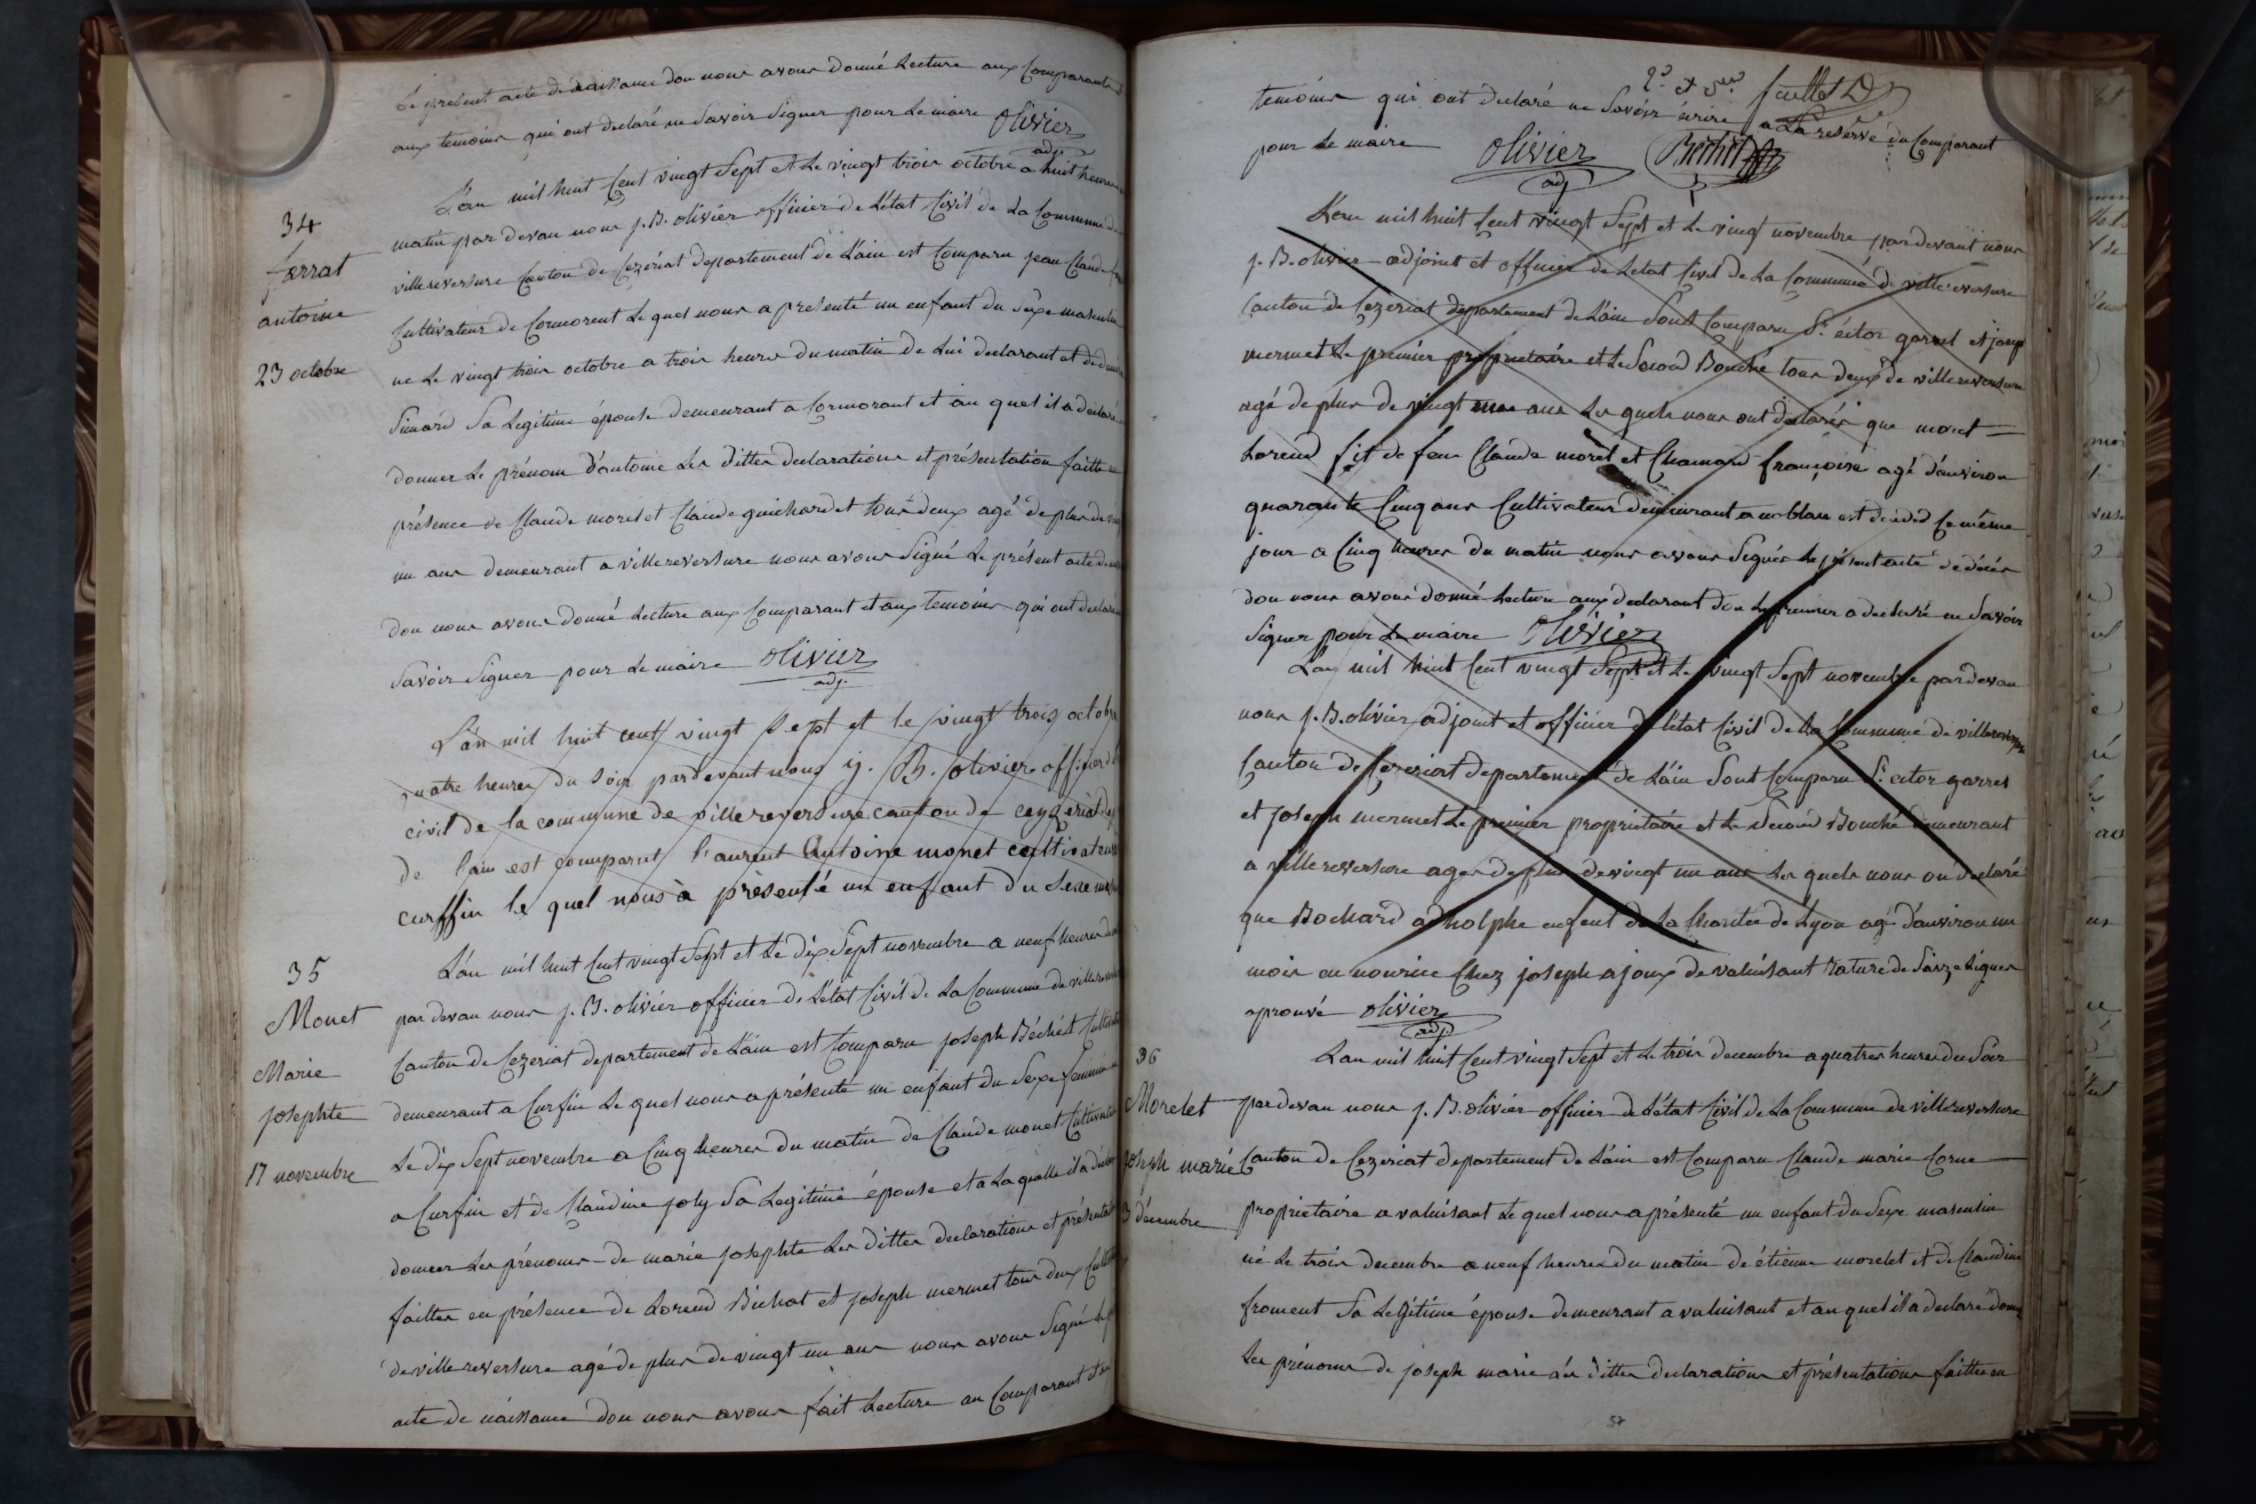 Le présent acte de naissance don nous avons donné Lecture aux Comparants
aux temoins qui ont declaré ne Savoir Signer pour Le maire Olivier
adj.
34
farrat
antoine
23 octobre
L'an mil huit Cent vingt Sept et Le vingt trois octobre a huit heures
matin par devan nous J. B. olivier officier de L'état Civil de La Commune de
villereversure Canton de Cezériat departement de L'ain est Comparu jean Claude
Cultivateur de Cormorent Le quel nous a présenté un enfant du Sexe masculin
né Le vingt trois octobre a trois heures du matin de Lui declarant et de
Simard Sa Legitime épouse demeurant a Cormorant et au quel il a declaré
donner Le prénom d'antoine Les dittes declarations et présentation faitte en
présence de Claude morel et Claude guichardet tous deux agé de plus de vingt
un ans demeurant a villereversure nous avons Signé Le présent acte de
don nous avons donné Lecture aux Comparant et aux temoins qui ont declaré
Savoir Signer pour Le maire Olivier
adj.
L'an mil huit cent vingt sept et le vingt trois octobre
quatre heures du soir pardevant nous j. B. olivier officier de
civil de la commune de villereversure canton de ceyzeriat
de l'ain est comparut laurent Antoine monet cultivateur
curffin le quel nous à présenté un enfant du sexe
35
Monet
Marie
josephte
17 novembre
L'an mil huit Cent vingt Sept et Le dix Sept novembre a neuf heures
par devan nous J. B. olivier officier de L'état Civil de La Commune de villereversure
Canton de Cezeriat departement de L'ain est Comparu joseph Béchet
demeurant a Curfin Le quel nous a présenté un enfant du Sexe feminin
Le dix Sept novembre a Cinq heures du matin de Claude monet Cultivateur
a Curfin et de Claudine joly Sa Legitime épouse et a La quelle il a
donner Les prénoms de marie josephte Les dittes declarations et présentation
faittes en présence de Lorend Bichat et joseph mermet tous deux
de villereversure agé de plus de vingt un ans nous avons Signé
acte de naissance don nous avons fait Lecture au Comparant
temoins qui ont declaré ne Savoir écrire a La reserve du Comparant
pour Le maire Olivier Béchet
adj
L'an mil huit Cent vingt Sept et Le vingt novembre par devant nous
J. B. olivier adjoint et officier de L'etat Civil de La Commune de villereversure
Canton de Cezeriat departement de L'ain Sont Comparu Sr. éctor garrel et joseph
mermet Le premier propriétaire et Le Second Bouché tous deux de villereversure
agé de plus de vingt un ans Les quels nous ont declarés que morel
Lorend fit de feu Claude morel et Chanard françoise agé d'environ
quarante Cinq ans Cultivateur demeurant a noblan est décédé Ce même
jour a Cinq heures du matin nous avons Signés Le présent acte de décès
don nous avons donné Lecture aux declarant don Le premier a declaré ne Savoir
Signer pour Le maire Olivier
L'an mil huit Cent vingt Sept et Le vingt Sept novembre par devan
nous J. B. olivier adjoint et officier de L'état Civil de La Commune de villereversure
Canton de Cezeriat departement de L'ain Sont Comparu Sr. ector garrel
et joseph mermet Le premier propriétaire et Le Second Bouché demeurant
a villereversure ages de plus de vingt un ans Les quels nous on declaré
que Bochard adholphe enfent de La Charitée de Lyon agé d'environ un
mois en nourice Chez joseph ajoux de valuisant rature de Saize Lignes
aprouvé Olivier
adj.
36
Morelet
joseph marie
3 décembre
L'an mil huit Cent vingt Sept et Le trois decembre a quatres heures du Soir
par devan nous J. B. olivier officier de L'état Civil de La Commune de villereversure
Canton de Cezeriat departement de L'ain est Comparu Claude marie Corne
propriétaire a valuisant Le quel nous a présenté un enfant du Sexe masculin
né Le trois decembre a neuf heures du matin de étienne morelet et de Claudine
froment Sa Legitime épouse demeurant a valuisant et au quel il a declaré donner
Les prénoms de joseph marie Les dittes declarations et présentations faittes en
57